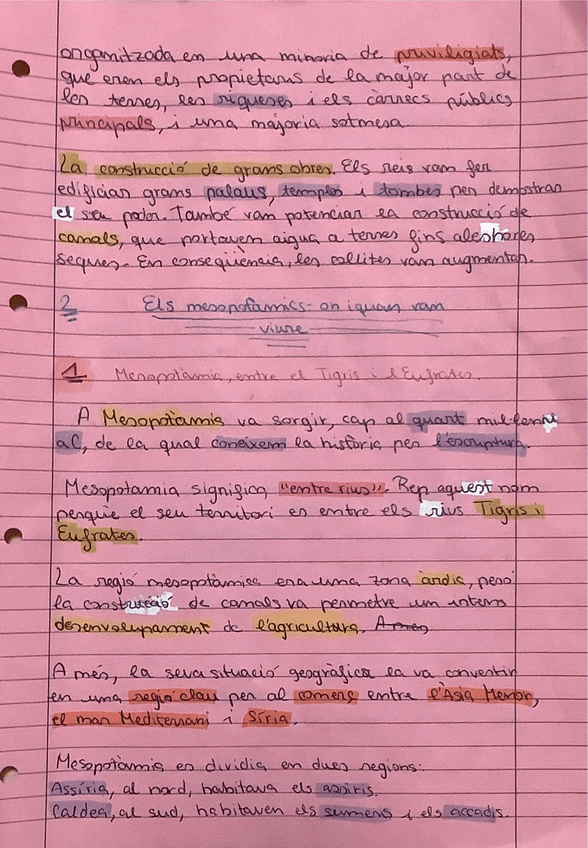 organitzada en una minoria de priviligiats,
que eren els propietaris de la major part de
les terres, les riqueses i els càrrecs públics
principals, i una majoria sotmesa.
La construcció de grans obres. Els reis van fer
edificiar grans palaus, temples i tombes per demostrar
el seu poder. També van potenciar la construcció de
canals, que portaven aigua a terres fins aleshores
seques. En conseqüència, les collites van augmentar.
2 Els mesopotàmics: on i quan van
viure
1 Mesopotàmia, entre el Tigris i l'Eufrates.
A Mesopotàmia va sorgir, cap al quart mil·lenni
aC, de la qual coneixem la història per l'escriptura.
Mesopotamia significa "entre rius". Rep aquest nom
perquè el seu territori es entre els rius Tigris i
Eufrates.
La regió mesopotàmica era una zona àrdia, però
la construició de canals va permetre un intens
desenvolupament de l'agricultura. A més,
A més, la seva situació geogràfica la va convertir
en una regió clau per al comerç entre l'Àsia Menor,
el mar Mediterrani i Síria.
Mesopotàmia es dividia en dues regions:
Assíria, al nord, habitava els assiris.
Caldea, al sud, habitaven els sumeris i els accadis.